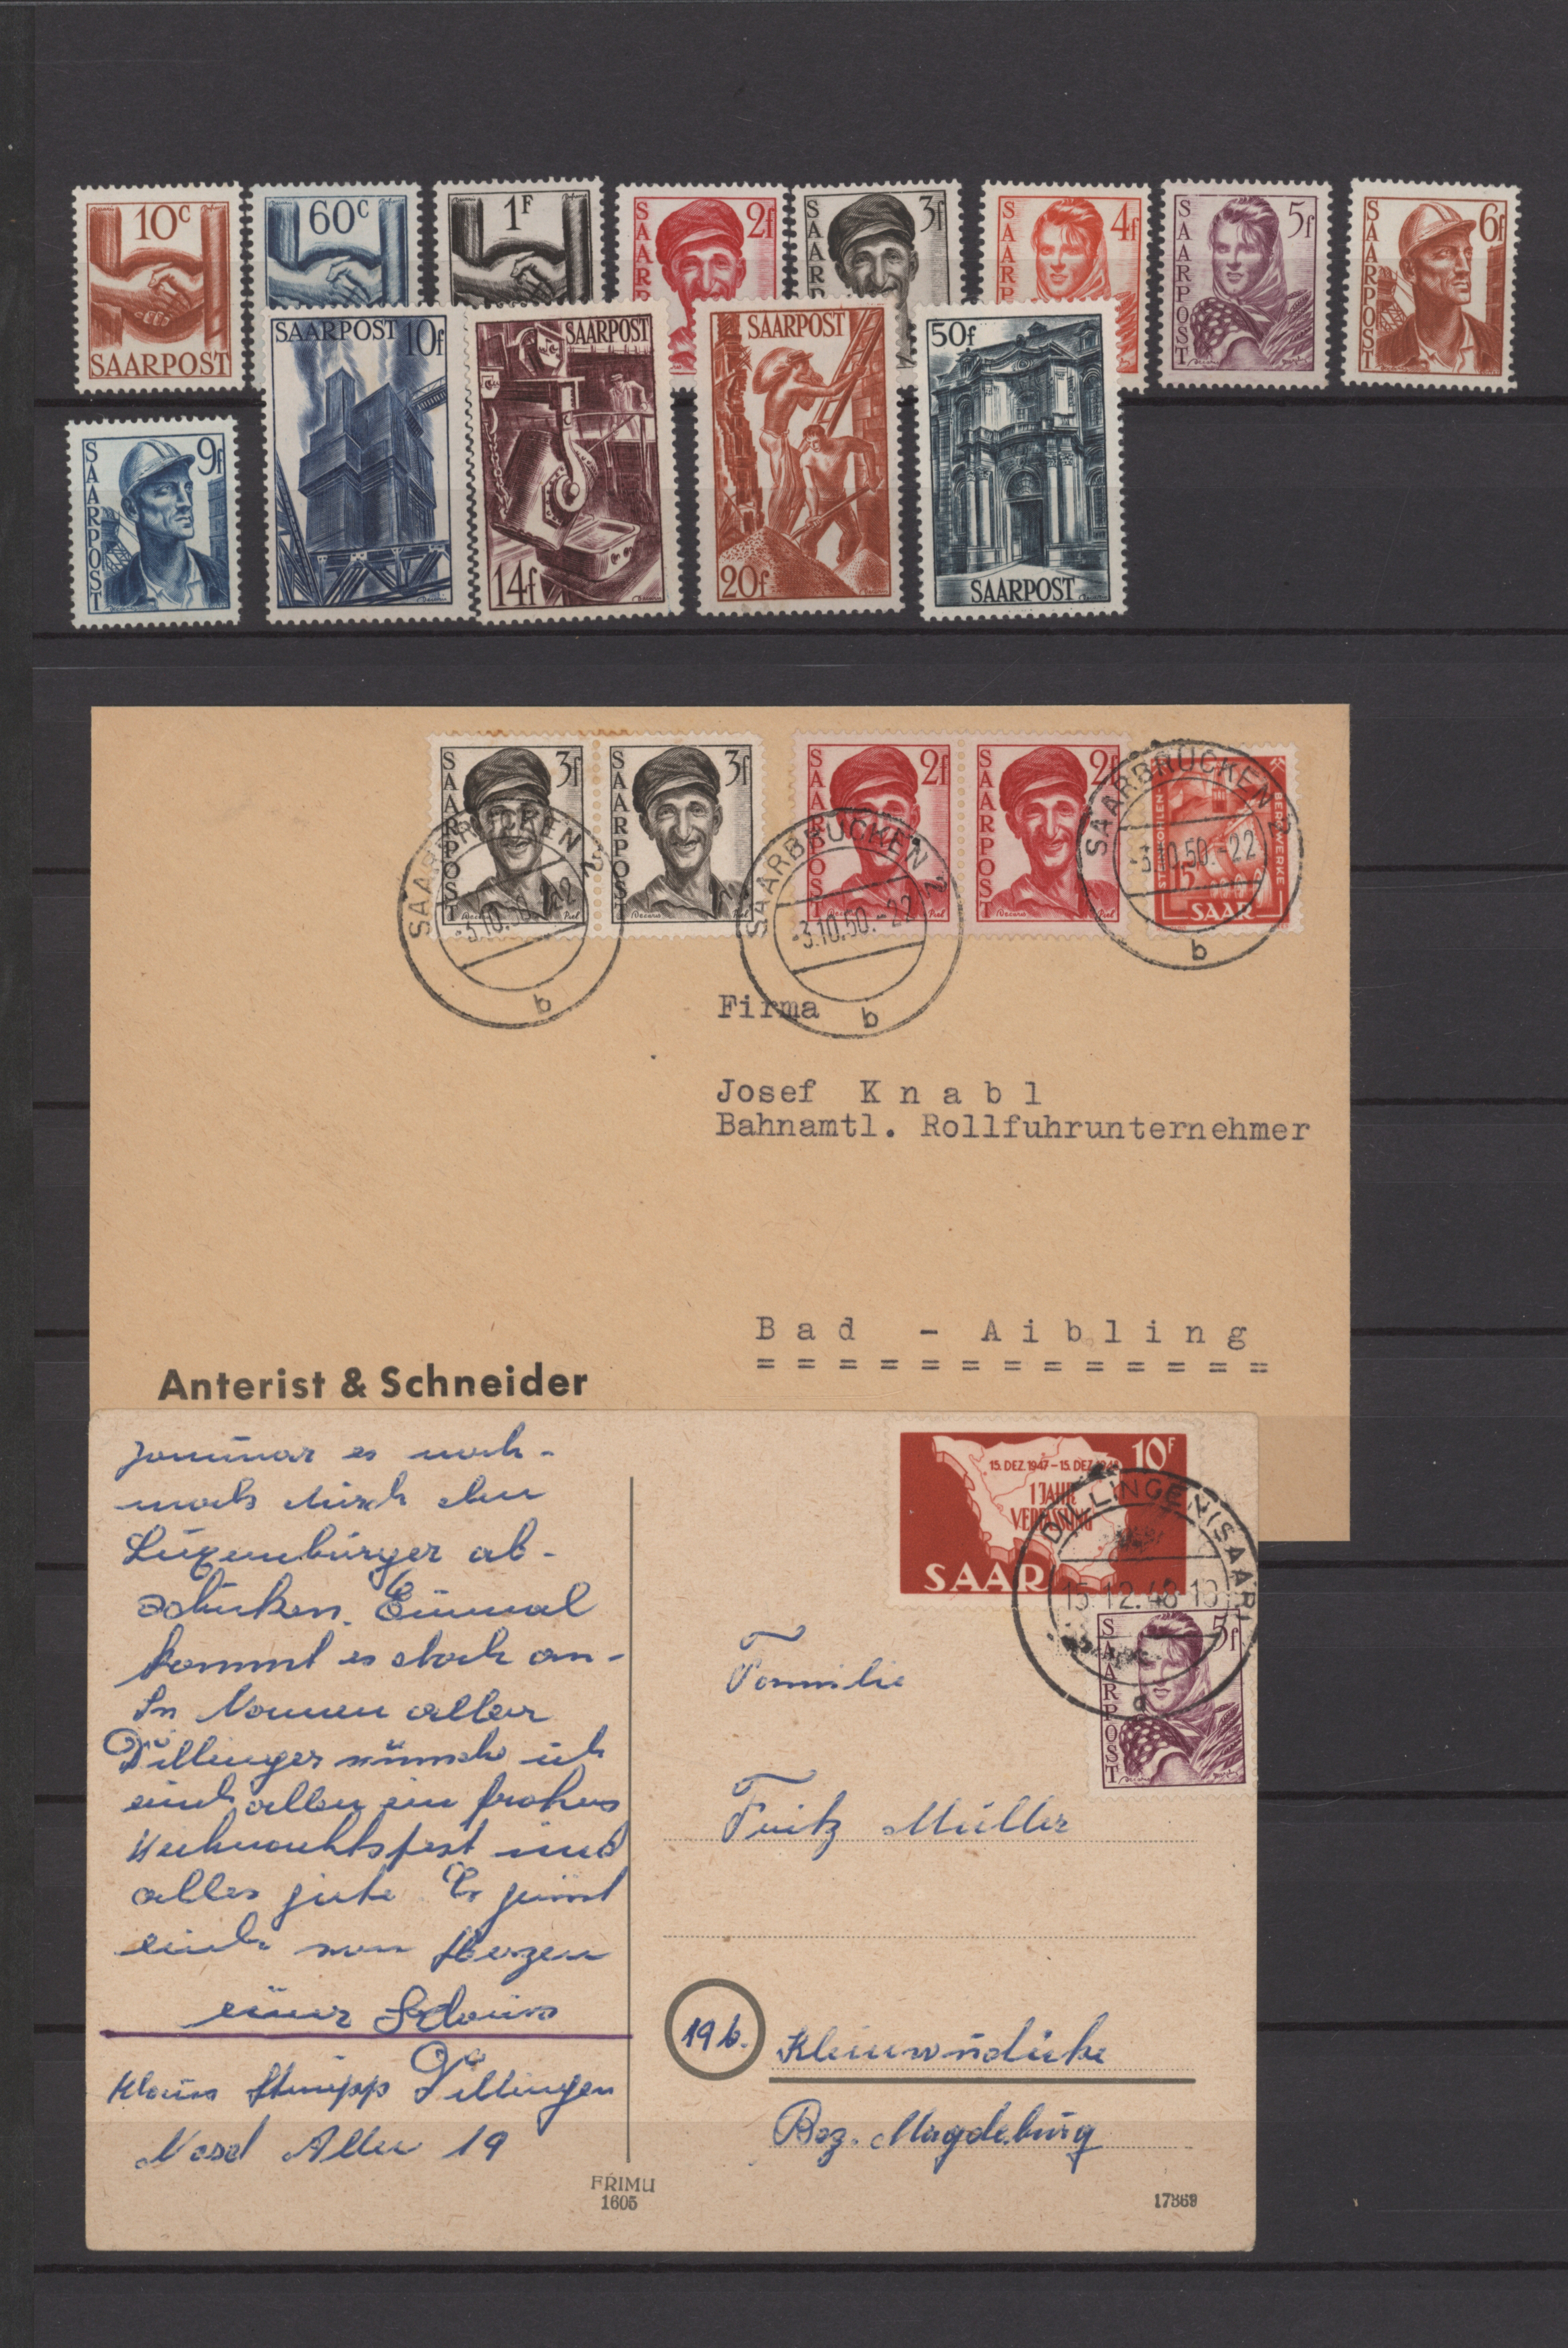 10c
SAARPOST
60c
1F
SAARP
2f
SAARP
3f
SAARP
4f
SAARPOST
5f
SAARPOST
6f
SAARPOST
9f
SAARPOST 10f
SAARPOST
14f
SAARPOST
20f
50f
SAARPOST
SAARPOST
3f
SAARPOST
3f
SAARPOST
2f
SAARPOST
2f
STEINKOHLEN
BERGWERKE
15
SAAR
SAARBRÜCKEN 2
-3.10.50.-22
b
SAARBRÜCKEN 2
-3.10.50.-22
b
SAARBRÜCKEN 2
-3.10.50.-22
b
Firma
Josef K n a b l
Bahnamtl. Rollfuhrunternehmer
B a d - A i b l i n g
= = = = = = = = = = = = =
Anterist & Schneider
es noch-
mals durch den
Luxemburger ab-
schicken. Einmal
kommt es doch an-
In Namen aller
Dillinger wünsche ich
euch allen ein frohes
Weihnachtsfest und
alles gute. Es grüsst
euch von Herzen
euer Klaus
Klaus Dillingen
Nasal Allee 19
15. DEZ. 1947-15. DEZ. 1948
10F
1 JAHR
VERFASSUNG
SAAR
DILLINGEN (SAAR)
15.12.48-10
a
SAARPOST
5f
Familie
Fritz Müller
19b.
Bez. Magdeburg
FRIMU
1605
17869